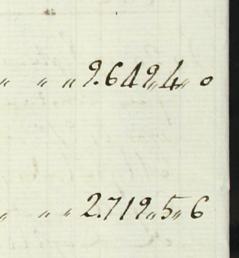 〃 〃 〃 9.649〃4〃 0
〃 〃 〃 2.719〃5〃 6